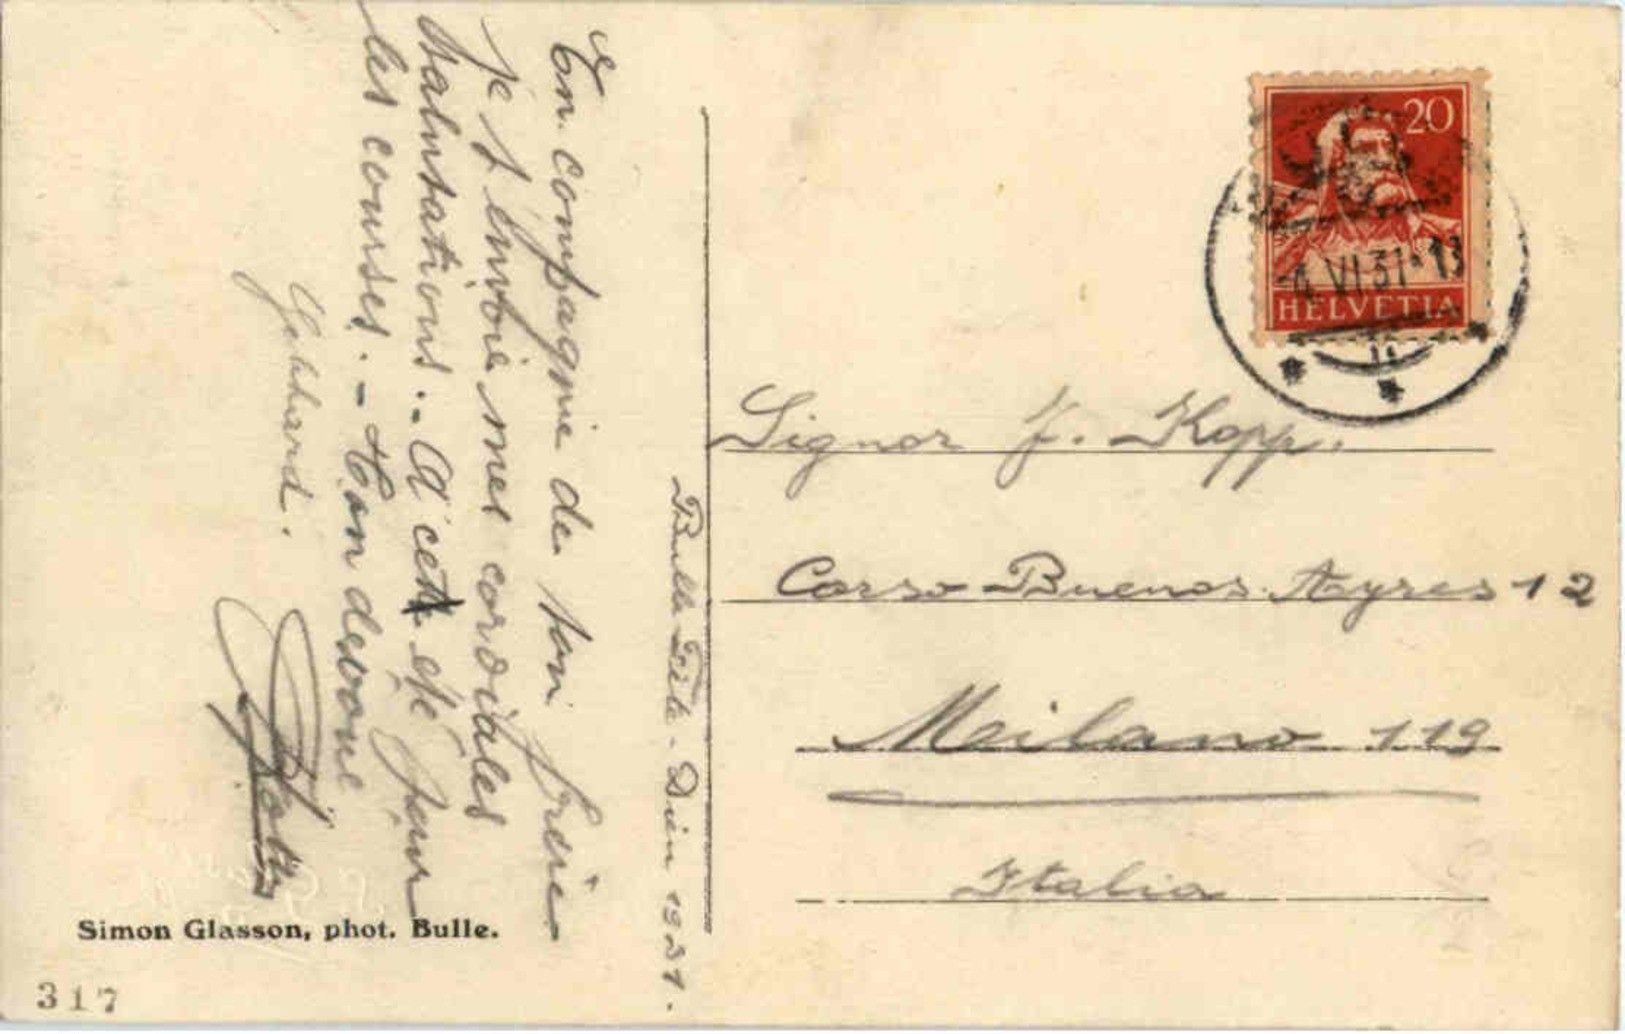 Bulle Fête-Dieu 1931.
En compagnie de ton frère
je t'envoie mes cordiales
salutations. - A cet été pour
les courses. - Ton dévoué
Gebhard.
Signor J. Kopp.
Corso Buenos Ayres 12
Milano 119
Italia
20
4 VI 31 13
HELVETIA
Simon Glasson, phot. Bulle.
317